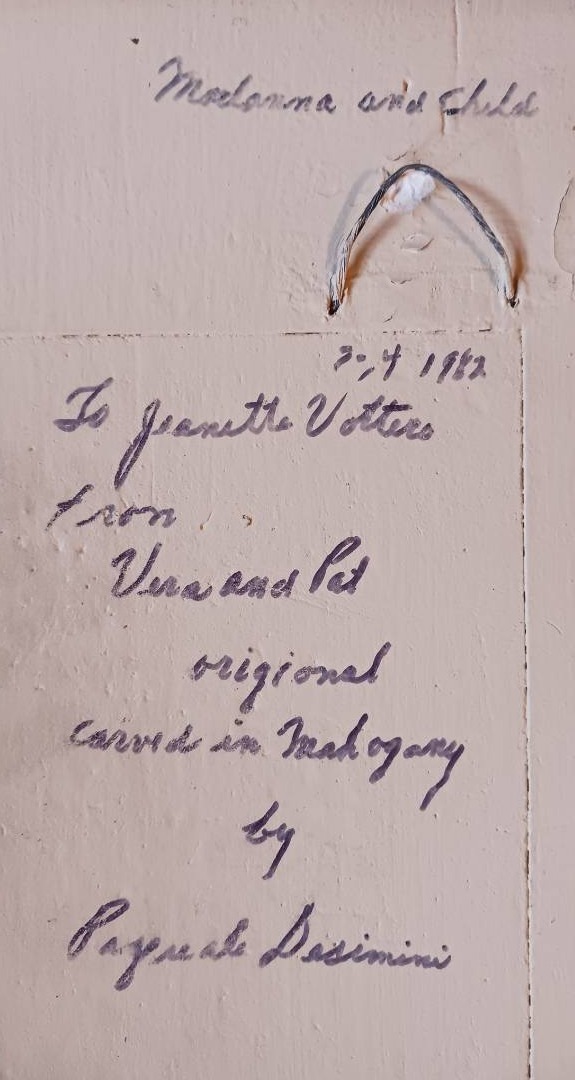 Madonna and Child
3-,4 1982
To Jeanette Vottero
from
Vera and Pat
origional
carved in Mahogany
by
Pasquale Desimini